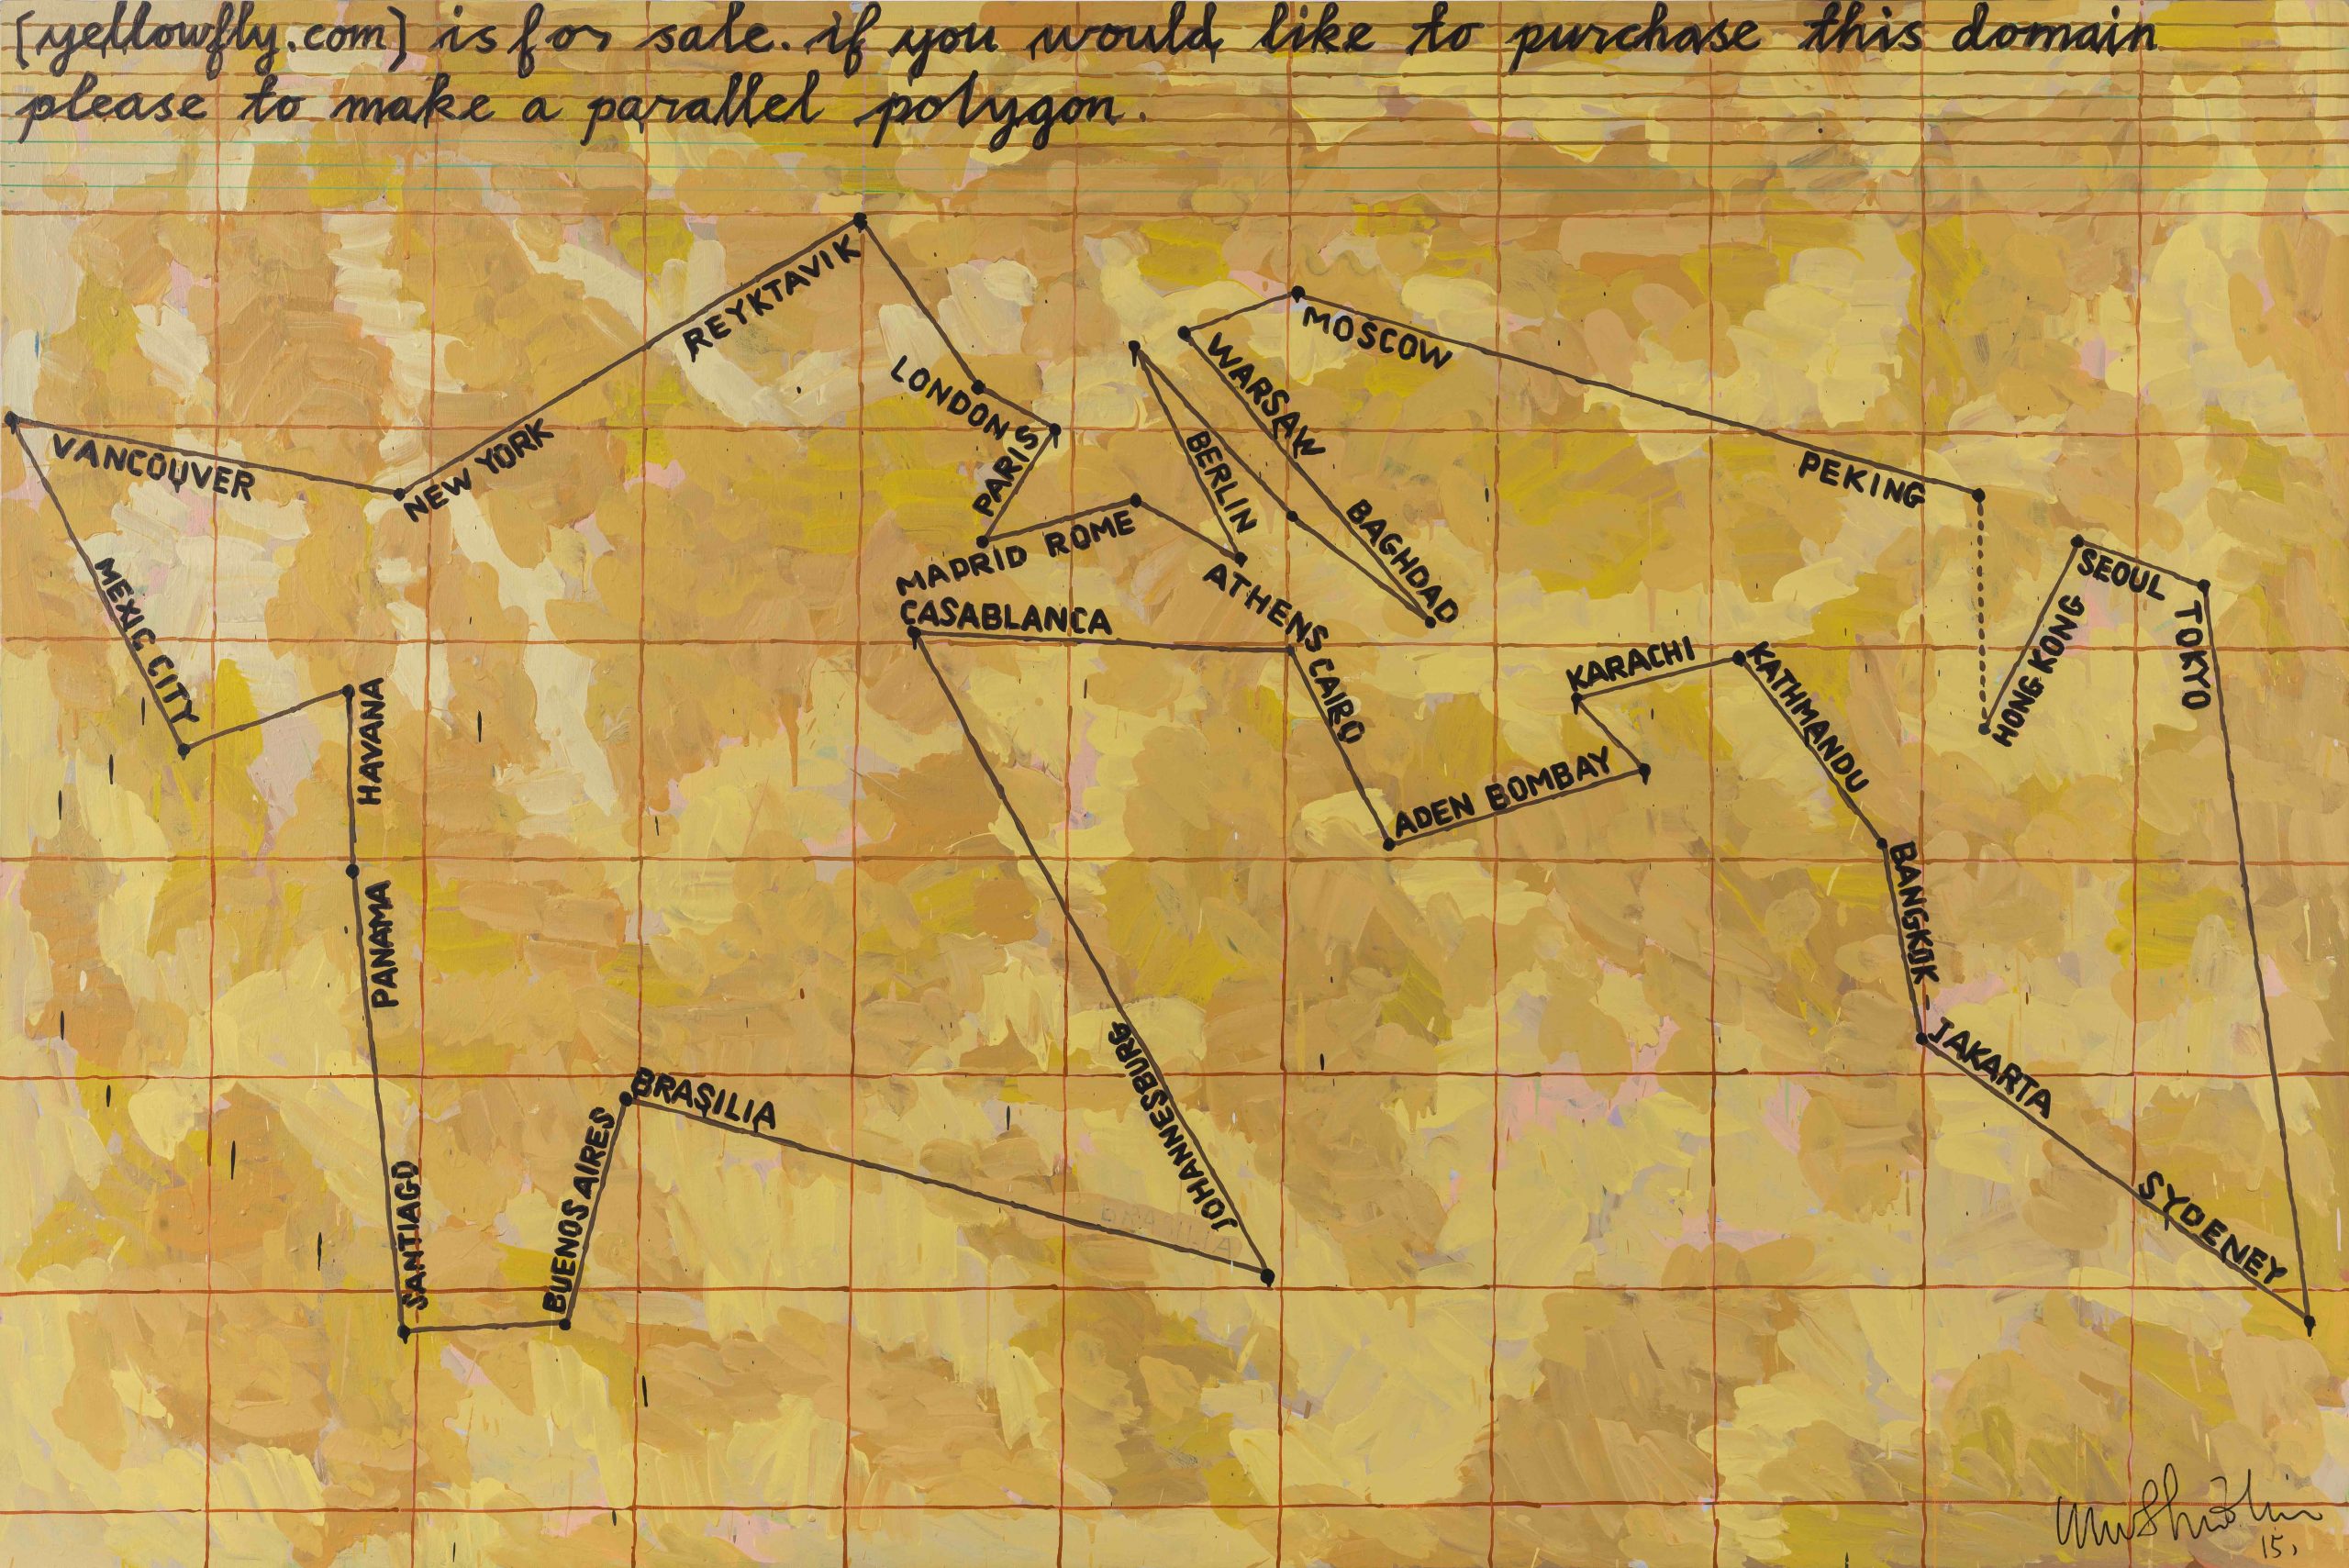 [yellowfly.com] is for sale. if you would like to purchase this domain
please to make a parallel polygon.
REYKTAVIK
MOSCOW
LONDON
WARSAW
VANCOUVER
NEW YORK
PARIS
BERLIN
PEKING
MADRID ROME
ATHENS
BAGHDAD
SEOUL
MEXIC CITY
CASABLANCA
HONG KONG
TOKYO
HAVANA
CAIRO
KARACHI
KATHMANDU
ADEN BOMBAY
PANAMA
BANGKOK
JAKARTA
JOHANNESBURG
BRASILIA
SANTIAGO
BUENOS AIRES
SYDENEY
15,